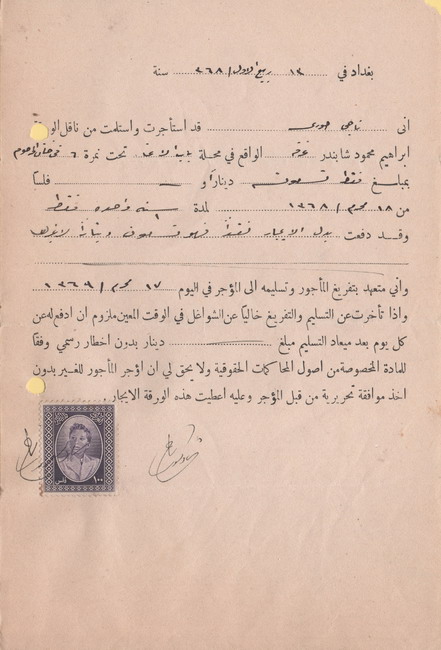 بغداد في ١٣ ربيع الاول / ٣٦٨ سنة
انى ناجي قد استأجرت واستلمت من ناقل
ابراهيم محمود شابندر غرفة الواقع في محلة تحت نمرة ٦
بمبلغ فقط ديناراً و فلساً
من ١٨ محرم / ١٣٦٨ لمدة سنه واحده فقط
وقد دفعت بدل الايجار
واني متعهد بتفريغ المأجور وتسليمه الى المؤجر في اليوم ١٧ محرم / ١٣٦٩
واذا تأخرت عن التسليم والتفريغ خالياً عن الشواغل في الوقت المعين ملزوم ان ادفع له عن
كل يوم بعد ميعاد التسليم مبلغ دينار بدون اخطار رسمي وفقا
للمادة المخصوصة من اصول المحاكمات الحقوقية ولا يحق لي ان اؤجر المأجور للغير بدون
اخذ موافقة تحريرية من قبل المؤجر وعليه اعطيت هذه الورقة الايجار.
١٠٠ فلس